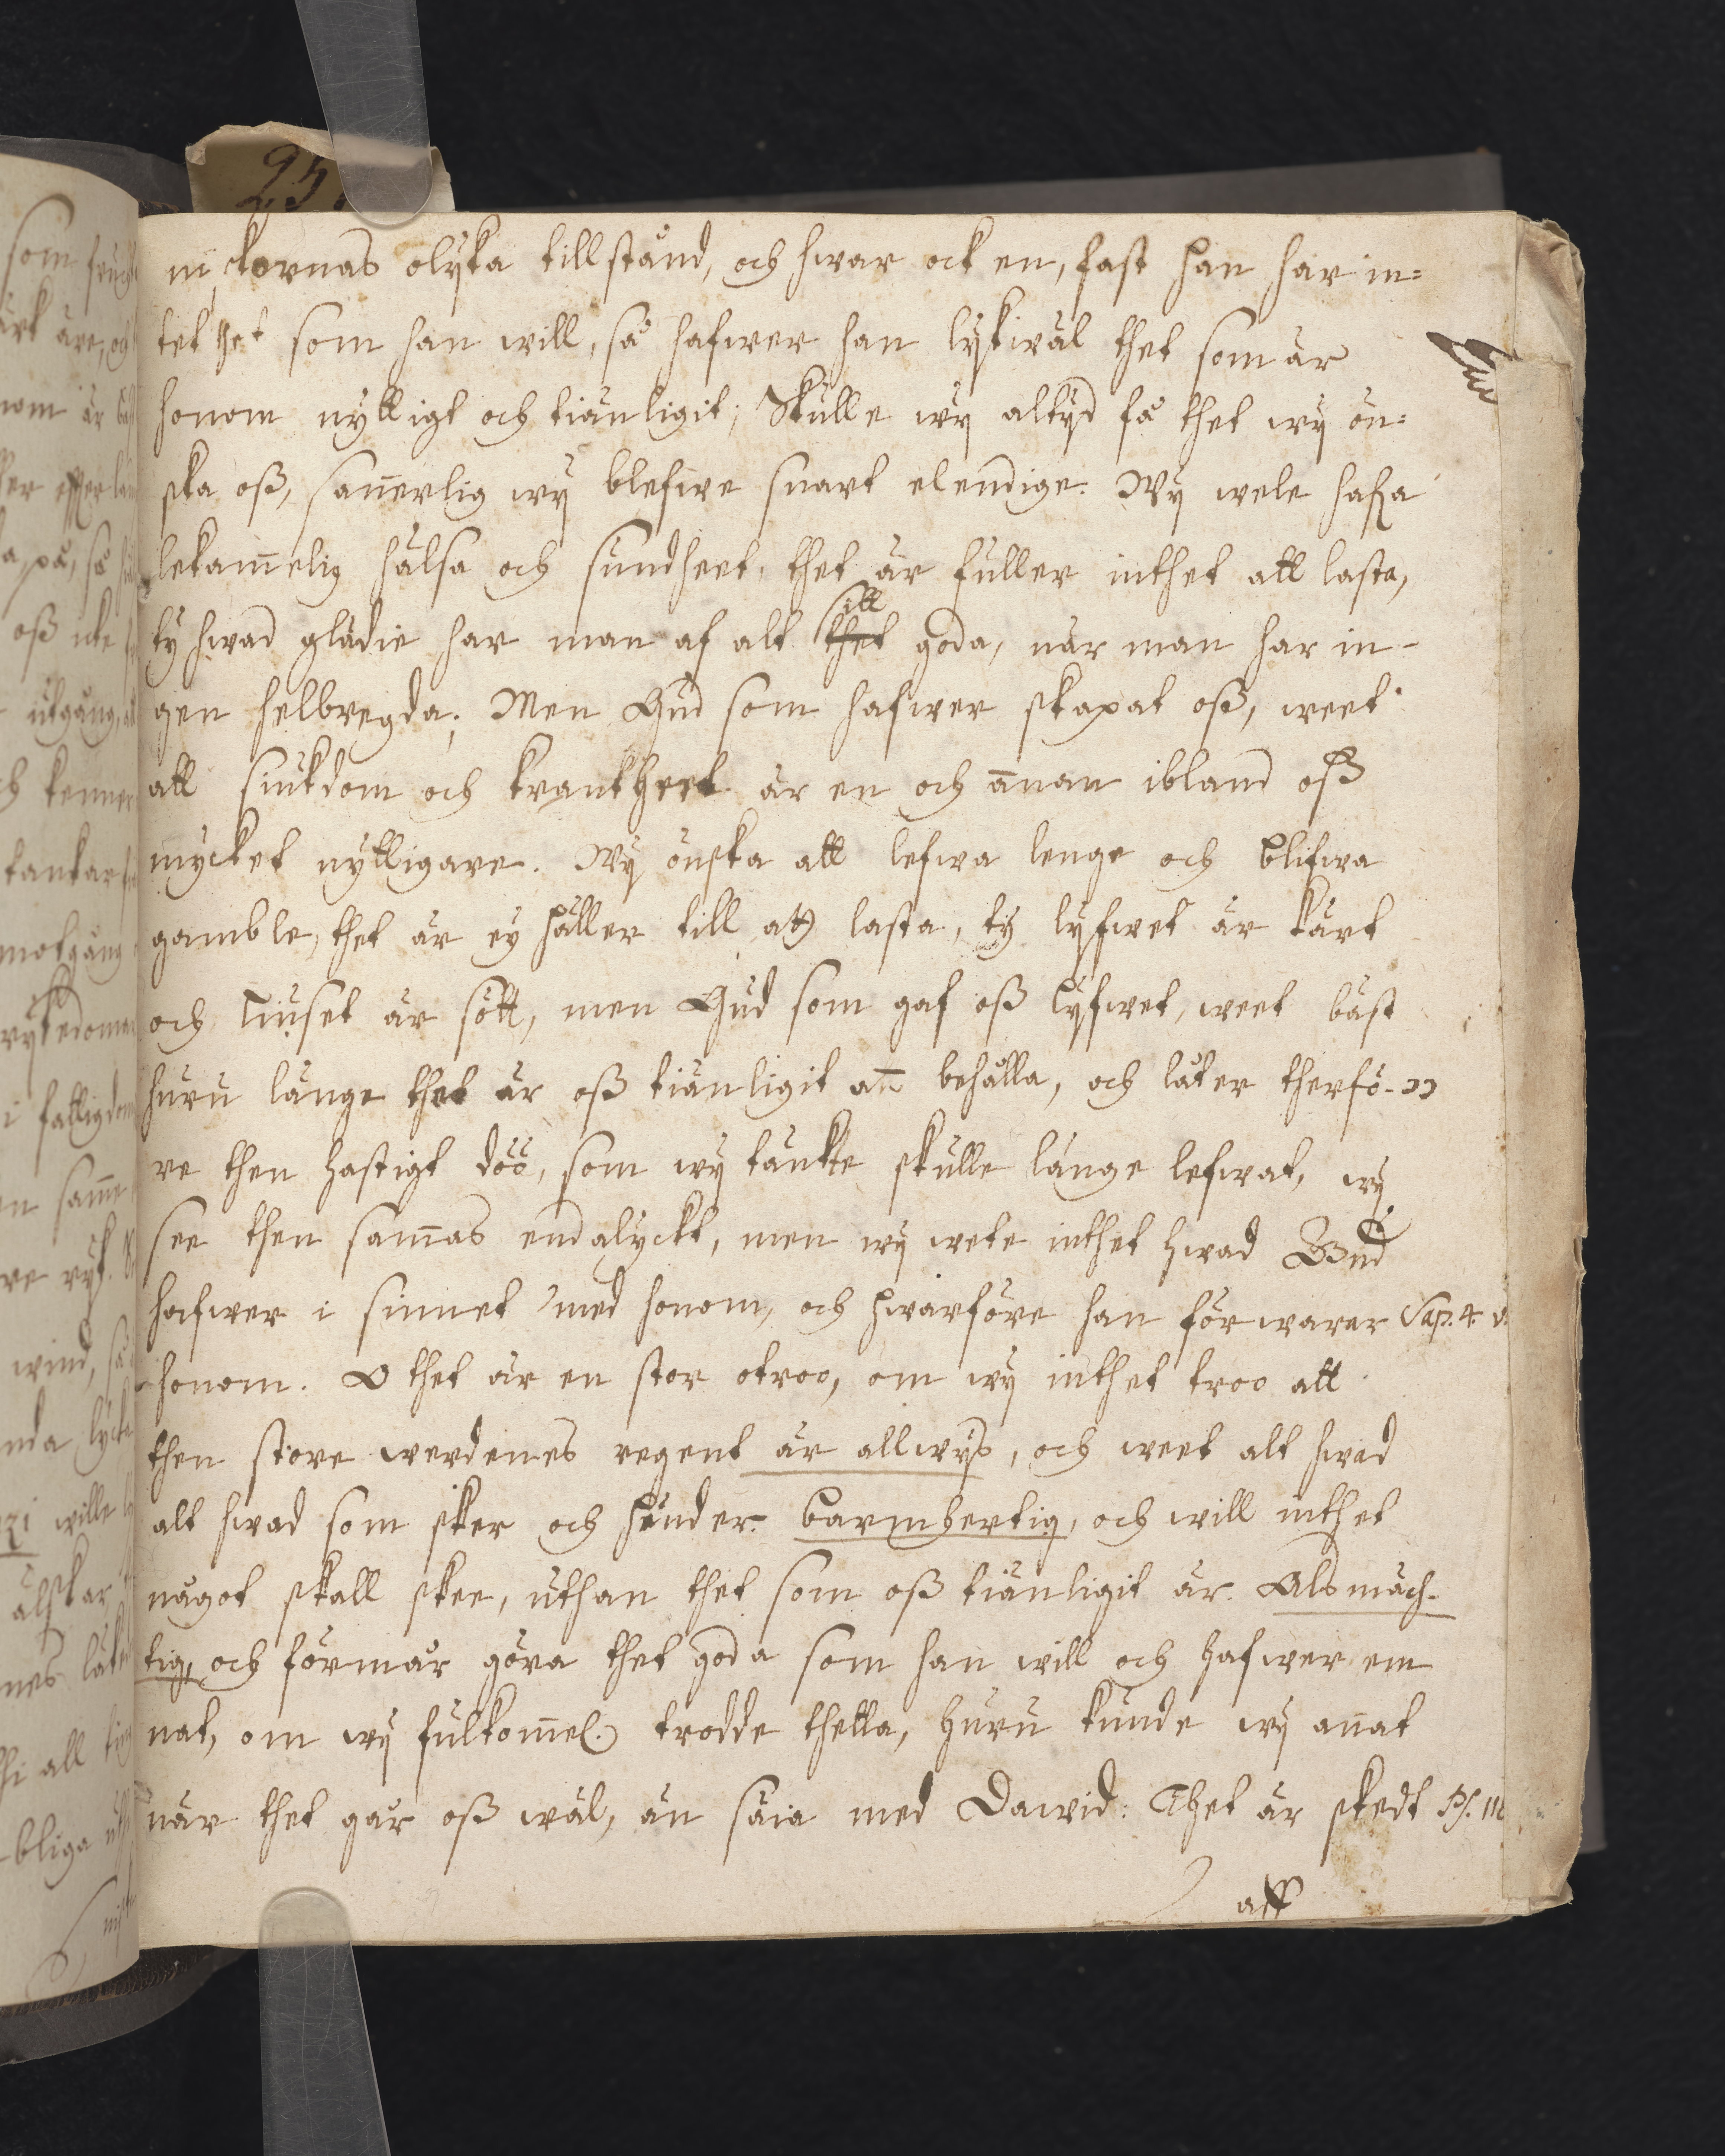 nickornas olyka tillstånd, och hwar ock en, fast han har in=
tet thet som han will, så hafwer han lykwäl thet som är
honom nyttigt och tiänligit; Skulle wÿ altÿd få thet wÿ ön=
ska oß, san̄erlig wÿ blefwe snart elendige. Wÿ wele hafa
lekam̄elig hälsa och sundheet, thet är fuller inthet att lasta,
ty hwad glädie har man af alt thet goda, när man har in-
gen helbregda; Men Gud som hafwer skapat oß, weet
att siukdom och krankheet är en och an̄an ibland oß
mycket nyttigare. Wÿ önska att lefwa lenge och blifwa
gamble, thet är eÿ häller till att lasta, tÿ lÿfwet är kärt
och Liuset är sött, men Gud som gaf oß lÿfwet, weet bäst
huru länge thet är oß tiänligit an̄ behålla, och låter therfö-
re then hastigt döö, som wÿ tänkte skulle länge lefwat, wÿ
see then sam̄as endalyckt, men wÿ wete inthet hwad Gud
hafwer i sinnet med honom, och hwarföre han förwarar Sap. 4 v.
honom. O thet är en stor otroo, om wÿ inthet troo att
then store werdenes regent är allwÿß, och weet alt hwad
alt hwad som sker och hender. barmhertig, och will inthet
något skall skee, uthan thet som oß tiänligit är. Alsmäch-
tig, och förmår göra thet goda som han will och hafwer em
nat, om wÿ fulkom̄el. trodde thetta, huru kunde wÿ an̄at
när thet går oß wäl, än säia med Dawid: Thet är skedt Ps. 118
att